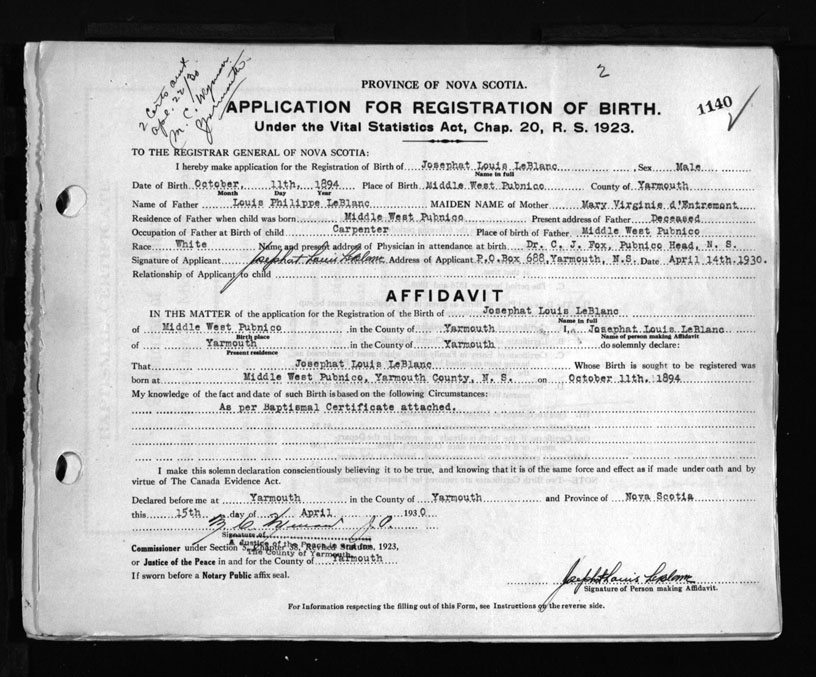 2
2 Certs sent
Apl. 22/30
M. C. Wyman
Yarmouth
1140
PROVINCE OF NOVA SCOTIA.
APPLICATION FOR REGISTRATION OF BIRTH.
Under the Vital Statistics Act, Chap. 20, R. S. 1923.
TO THE REGISTRAR GENERAL OF NOVA SCOTIA:
I hereby make application for the Registration of Birth of Josephat Louis LeBlanc, Sex Male
Name in full
Date of Birth October, 11th, 1894 Place of Birth Middle West Pubnico County of Yarmouth
Month Day Year
Name of Father Louis Philippe LeBlanc MAIDEN NAME of Mother Mary Virginie d'Entremont
Residence of Father when child was born Middle West Pubnico Present address of Father Deceased
Occupation of Father at Birth of child Carpenter Place of birth of Father Middle West Pubnico
Race White Name and present address of Physician in attendance at birth Dr. C. J. Fox, Pubnico Head, N. S.
Signature of Applicant Josephat Louis LeBlanc Address of Applicant P.O.Box 688,Yarmouth, N.S. Date April 14th.1930.
Relationship of Applicant to child
AFFIDAVIT
IN THE MATTER of the application for the Registration of the Birth of Josephat Louis LeBlanc
Name in full
of Middle West Pubnico in the County of Yarmouth I, Josephat Louis LeBlanc
Birth place Name of person making Affidavit
of Yarmouth in the County of Yarmouth do solemnly declare:
Present residence
That Josephat Louis LeBlanc Whose Birth is sought to be registered was
born at Middle West Pubnico, Yarmouth County, N. S. on October 11th, 1894
My knowledge of the fact and date of such Birth is based on the following Circumstances:
As per Baptismal Certificate attached.
I make this solemn declaration conscientiously believing it to be true, and knowing that it is of the same force and effect as if made under oath and by
virtue of The Canada Evidence Act.
Declared before me at Yarmouth in the County of Yarmouth and Province of Nova Scotia
this 15th day of April 1930
J.P.
Signature of
A Justice of the Peace in and for
Commissioner under Section 5, Chapter 38, Revised Statutes, 1923,
The County of Yarmouth
or Justice of the Peace in and for the County of Yarmouth
If sworn before a Notary Public affix seal.
Josephat Louis LeBlanc
Signature of Person making Affidavit.
For Information respecting the filling out of this Form, see Instructions on the reverse side.